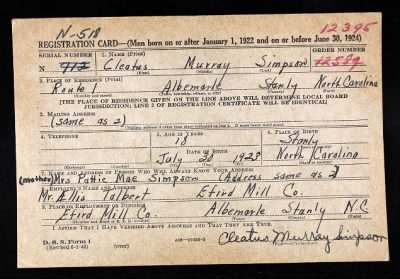 N-518
12395
REGISTRATION CARD—(Men born on or after January 1, 1922 and on or before June 30, 1924)
SERIAL NUMBER 1. NAME (Print) ORDER NUMBER
N Cleatus Murray Simpson
(First) (Middle) (Last)
2. PLACE OF RESIDENCE (Print)
Route 1 Albemarle Stanly North Carolina
[THE PLACE OF RESIDENCE GIVEN ON THE LINE ABOVE WILL DETERMINE LOCAL BOARD
JURISDICTION; LINE 2 OF REGISTRATION CERTIFICATE WILL BE IDENTICAL]
3. MAILING ADDRESS
(same as 2)
4. TELEPHONE 5. AGE IN YEARS 6. PLACE OF BIRTH
18 Stanly
DATE OF BIRTH
July 20 1923 North Carolina
7. NAME AND ADDRESS OF PERSON WHO WILL ALWAYS KNOW YOUR ADDRESS
(mother) Mrs Pattie Mae Simpson (Address same as 2)
8. EMPLOYER'S NAME AND ADDRESS
Mr. Ellis Talbert Efird Mill Co.
9. PLACE OF EMPLOYMENT OR BUSINESS
Efird Mill Co. Albemarle Stanly N C
I AFFIRM THAT I HAVE VERIFIED ABOVE ANSWERS AND THAT THEY ARE TRUE.
D. S. S. Form 1
(over)
Cleatus Murray Simpson